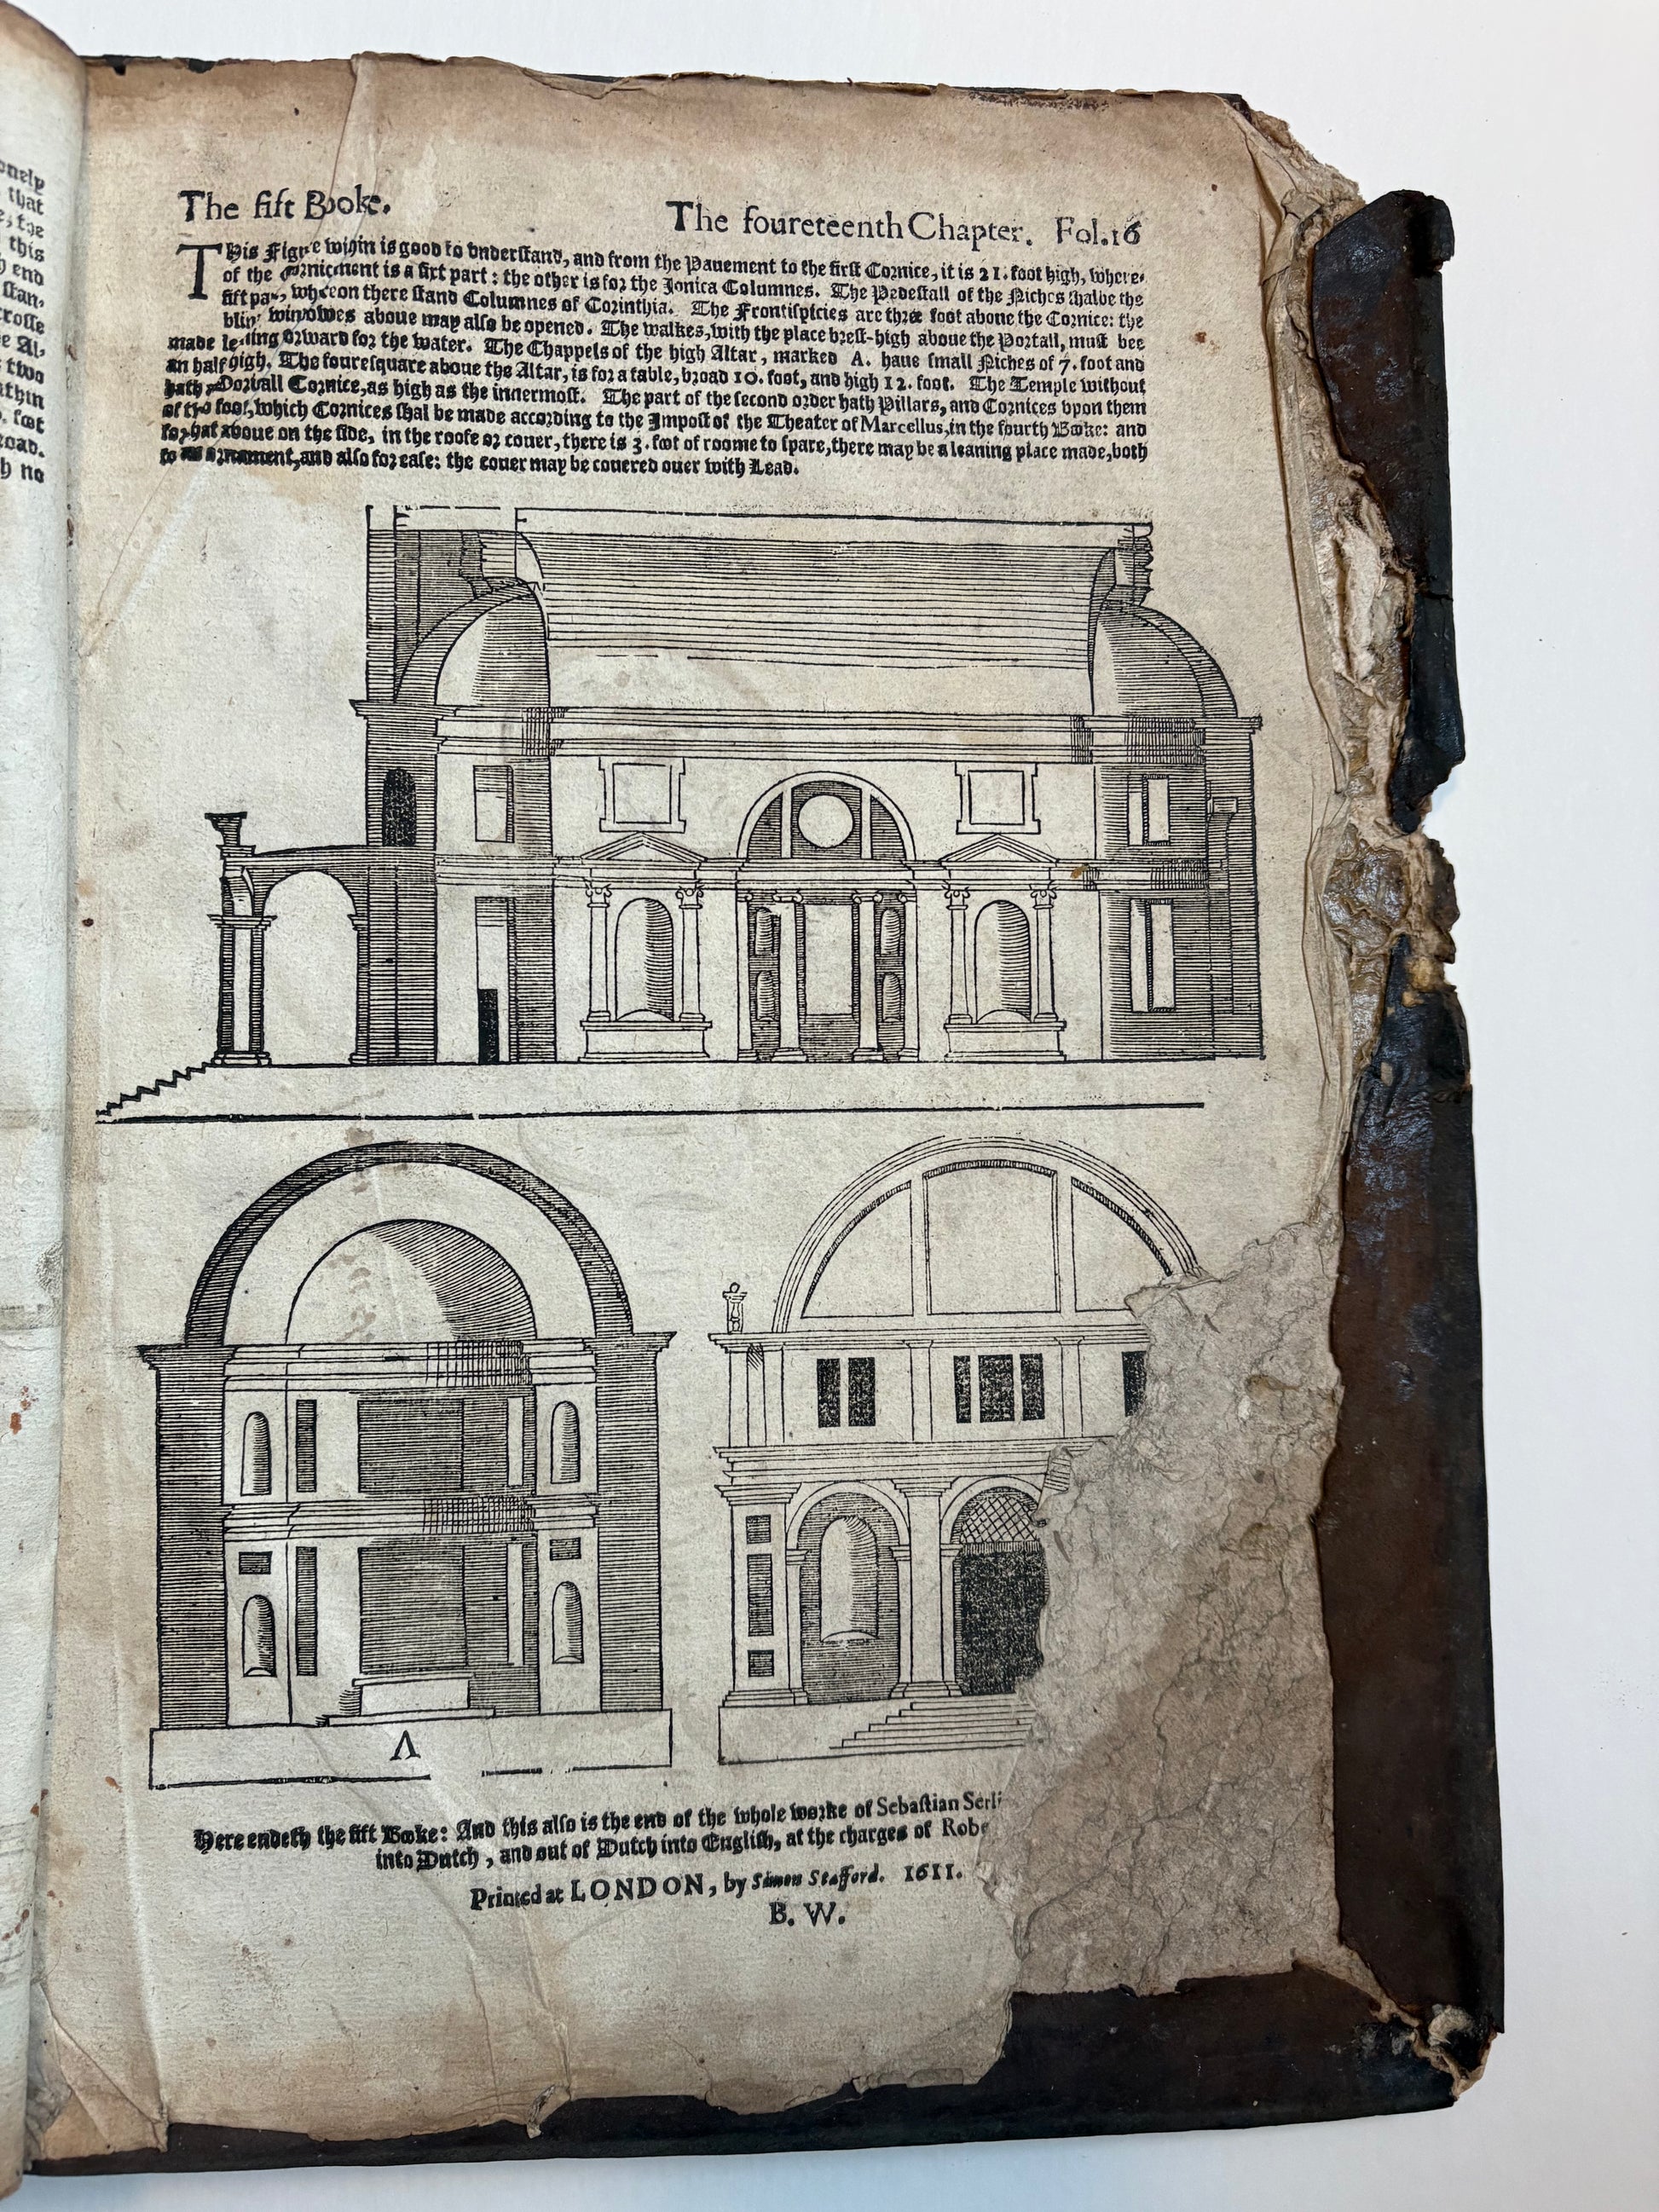 onely
that
this
end
stan,
crosse
e Al,
two
athin
foot
road.
h no
The fift Booke.
The foureteenth Chapter. Fol.16
THis Figure within is good to vnderstand, and from the Pauement to the first Cornice, it is 21. foot high, where,
of the is a sixt part: the other is for the Jonica Columnes. The Pedestall of the Niches shalbe the
fift part, whereon there stand Columnes of Corinthia. The Frontispicies are three foot aboue the Cornice: the
blind windowes aboue may also be opened. The walkes, with the place brest-high aboue the Portall, must bee
made leaning forward for the water. The Chappels of the high Altar, marked A. haue small Niches of 7. foot and
an half high. The fouresquare aboue the Altar, is for a table, broad 10. foot, and high 12. foot. The Temple without
hath a Doricall Cornice, as high as the innermost. The part of the second order hath Pillars, and Cornices vpon them
of two foot, which Cornices shal be made according to the Impost of the Theater of Marcellus, in the fourth Booke: and
for that aboue on the side, in the roofe or couer, there is 3. foot of roome to spare, there may be a leaning place made, both
to an ornament, and also for ease: the couer may be couered ouer with Lead.
A
Here endeth the fift Booke: And this also is the end of the whole worke of Sebastian Serli
into Dutch, and out of Dutch into English, at the charges of Robe
Printed at LONDON, by Simon Stafford. 1611.
B. W.